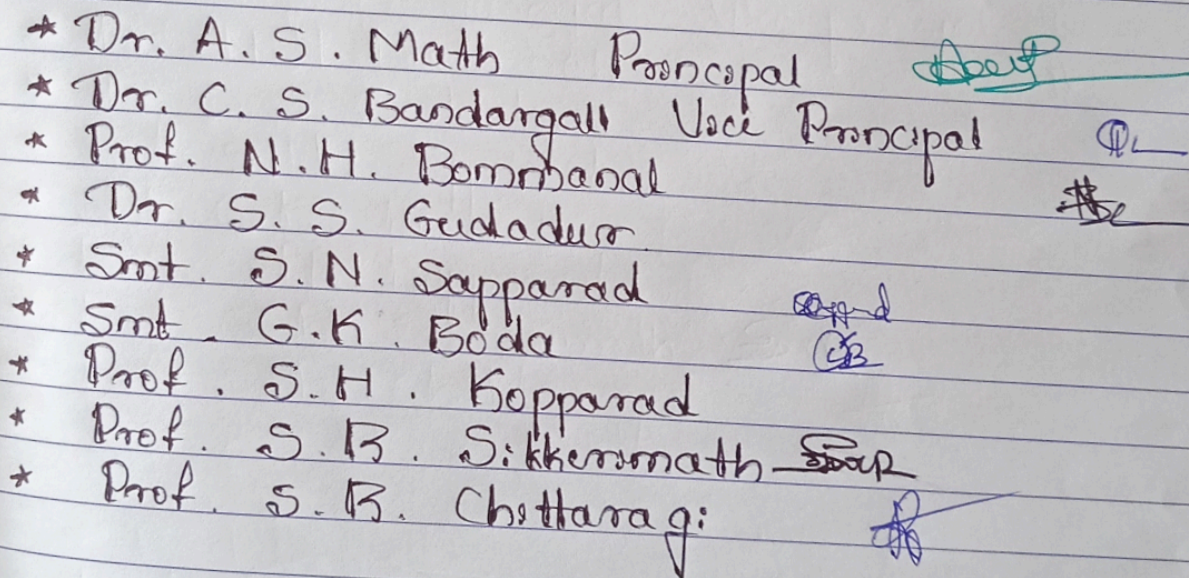 * Dr. A. S. Math Principal
* Dr. C. S. Bandargall Vice Principal
* Prof. N.H. Bommbanal
* Dr. S. S. Gudadur
* Smt. S.N. Sapparad
* Smt. G.K. Boda
* Prof. S.H. Kopparad
* Prof. S.B. Sikkerimath
* Prof. S.B. Chittaragi